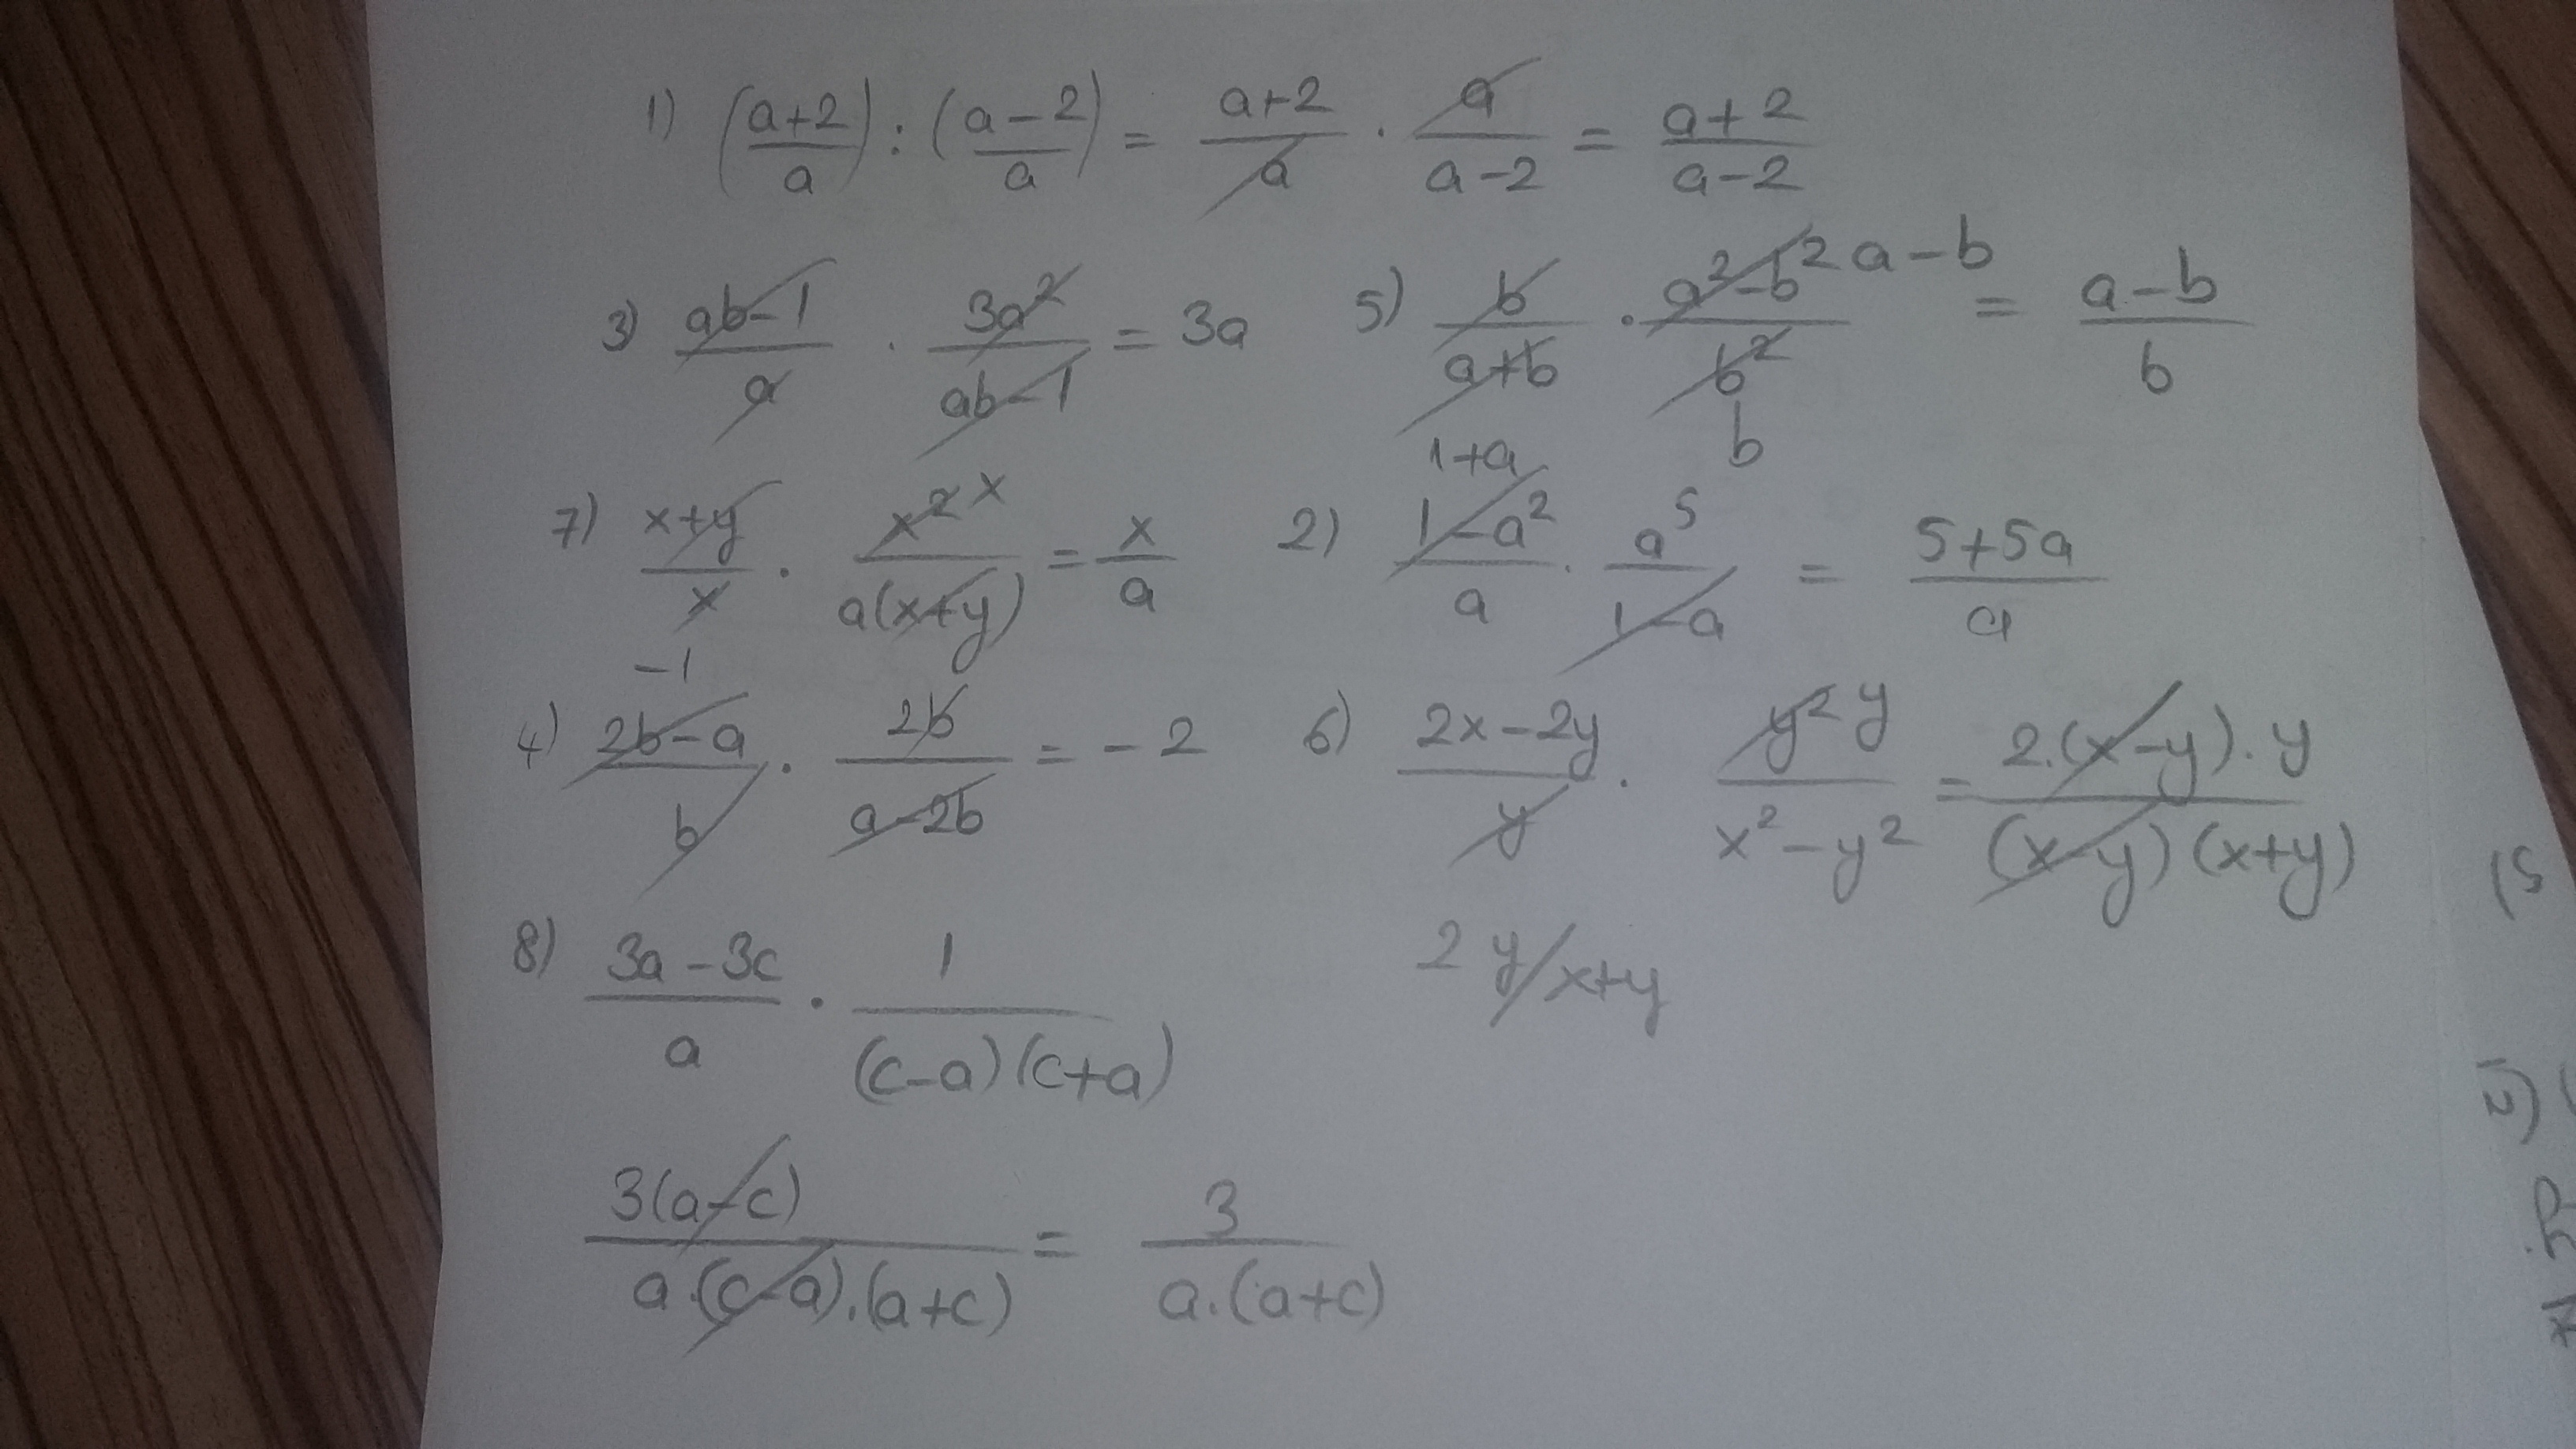 1) (a+2/a) : (a-2/a) = a+2/a · a/a-2 = a+2/a-2
3) ab-1/a · 3a²/ab-1 = 3a
5) b/a+b · a²-b²/b² a-b b = a-b/b
7) x+y/x · x² x/a(x+y) = x/a
2) 1+a 1-a²/a · a⁵/1-a = 5+5a/a
4) -1 2b-a/b · 2b/a-2b = -2
6) 2x-2y/y · y² y/x²-y² = 2.(x-y).y/(x-y)(x+y)
2y/x+y
8) 3a-3c/a · 1/(c-a)(c+a)
3(a-c)/a.(c-a).(a+c) = 3/a.(a+c)